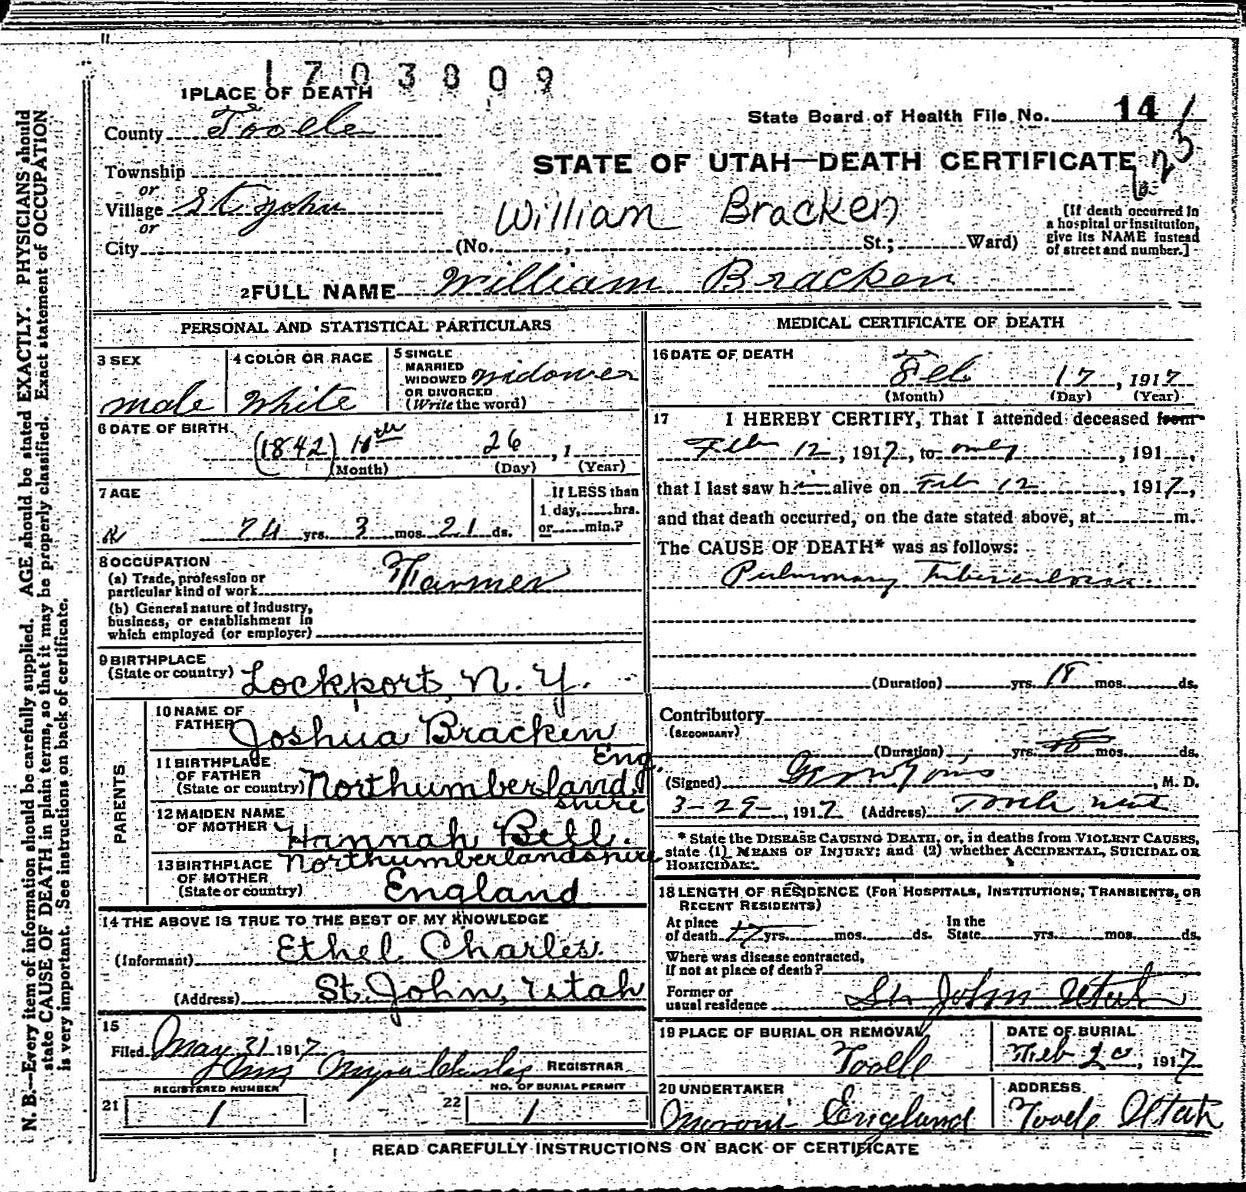 1703809
1 PLACE OF DEATH
County Tooele
State Board of Health File No. 14
Township
or
Village St John
or
City
STATE OF UTAH—DEATH CERTIFICATE
William Bracken
(No. , St.; Ward)
[If death occurred in
a hospital or institution,
give its NAME instead
of street and number.]
2 FULL NAME William Bracken
PERSONAL AND STATISTICAL PARTICULARS
3 SEX
male
4 COLOR OR RACE
White
5 SINGLE
MARRIED
WIDOWED
OR DIVORCED
(Write the word)
widower
6 DATE OF BIRTH
(1842) 10th 26 , 1
(Month) (Day) (Year)
7 AGE
74 yrs. 3 mos. 21 ds.
If LESS than
1 day, hrs.
or min.?
8 OCCUPATION
(a) Trade, profession or
particular kind of work Farmer
(b) General nature of industry,
business, or establishment in
which employed (or employer)
9 BIRTHPLACE
(State or country) Lockport, N. Y.
PARENTS
10 NAME OF
FATHER Joshua Bracken
11 BIRTHPLACE
OF FATHER
(State or country) Northumberland
shire Eng.
12 MAIDEN NAME
OF MOTHER Hannah Bell.
13 BIRTHPLACE
OF MOTHER
(State or country) Northumberlandshire
England
14 THE ABOVE IS TRUE TO THE BEST OF MY KNOWLEDGE
(Informant) Ethel Charles.
(Address) St. John, Utah
15
Filed May 31 1917
Myra Charles REGISTRAR
REGISTERED NUMBER
21 1
NO. OF BURIAL PERMIT
22 1
MEDICAL CERTIFICATE OF DEATH
16 DATE OF DEATH
Feb 17 , 1917
(Month) (Day) (Year)
17 I HEREBY CERTIFY, That I attended deceased from
Feb 12, 1917, to only , 191 ,
that I last saw him alive on Feb 12 , 1917,
and that death occurred, on the date stated above, at m.
The CAUSE OF DEATH* was as follows:
Pulmonary Tuberculosis.
(Duration) yrs. 18 mos. ds.
Contributory
(SECONDARY)
(Duration) yrs. 18 mos. ds.
(Signed) M. D.
3-29-, 1917 (Address) Tooele
* State the DISEASE CAUSING DEATH, or, in deaths from VIOLENT CAUSES,
state (1) MEANS OF INJURY; and (2) whether ACCIDENTAL, SUICIDAL OR
HOMICIDAL.
18 LENGTH OF RESIDENCE (FOR HOSPITALS, INSTITUTIONS, TRANSIENTS, OR
RECENT RESIDENTS)
At place
of death yrs. mos. ds.
In the
State yrs. mos. ds.
Where was disease contracted,
if not at place of death?
Former or
usual residence St John Utah
19 PLACE OF BURIAL OR REMOVAL
Tooele
DATE OF BURIAL
Feb 20, 1917
20 UNDERTAKER
Moroni England
ADDRESS
Tooele Utah
READ CAREFULLY INSTRUCTIONS ON BACK OF CERTIFICATE
N. B.—Every item of information should be carefully supplied. AGE should be stated EXACTLY. PHYSICIANS should
state CAUSE OF DEATH in plain terms, so that it may be properly classified. Exact statement of OCCUPATION
is very important. See instructions on back of certificate.